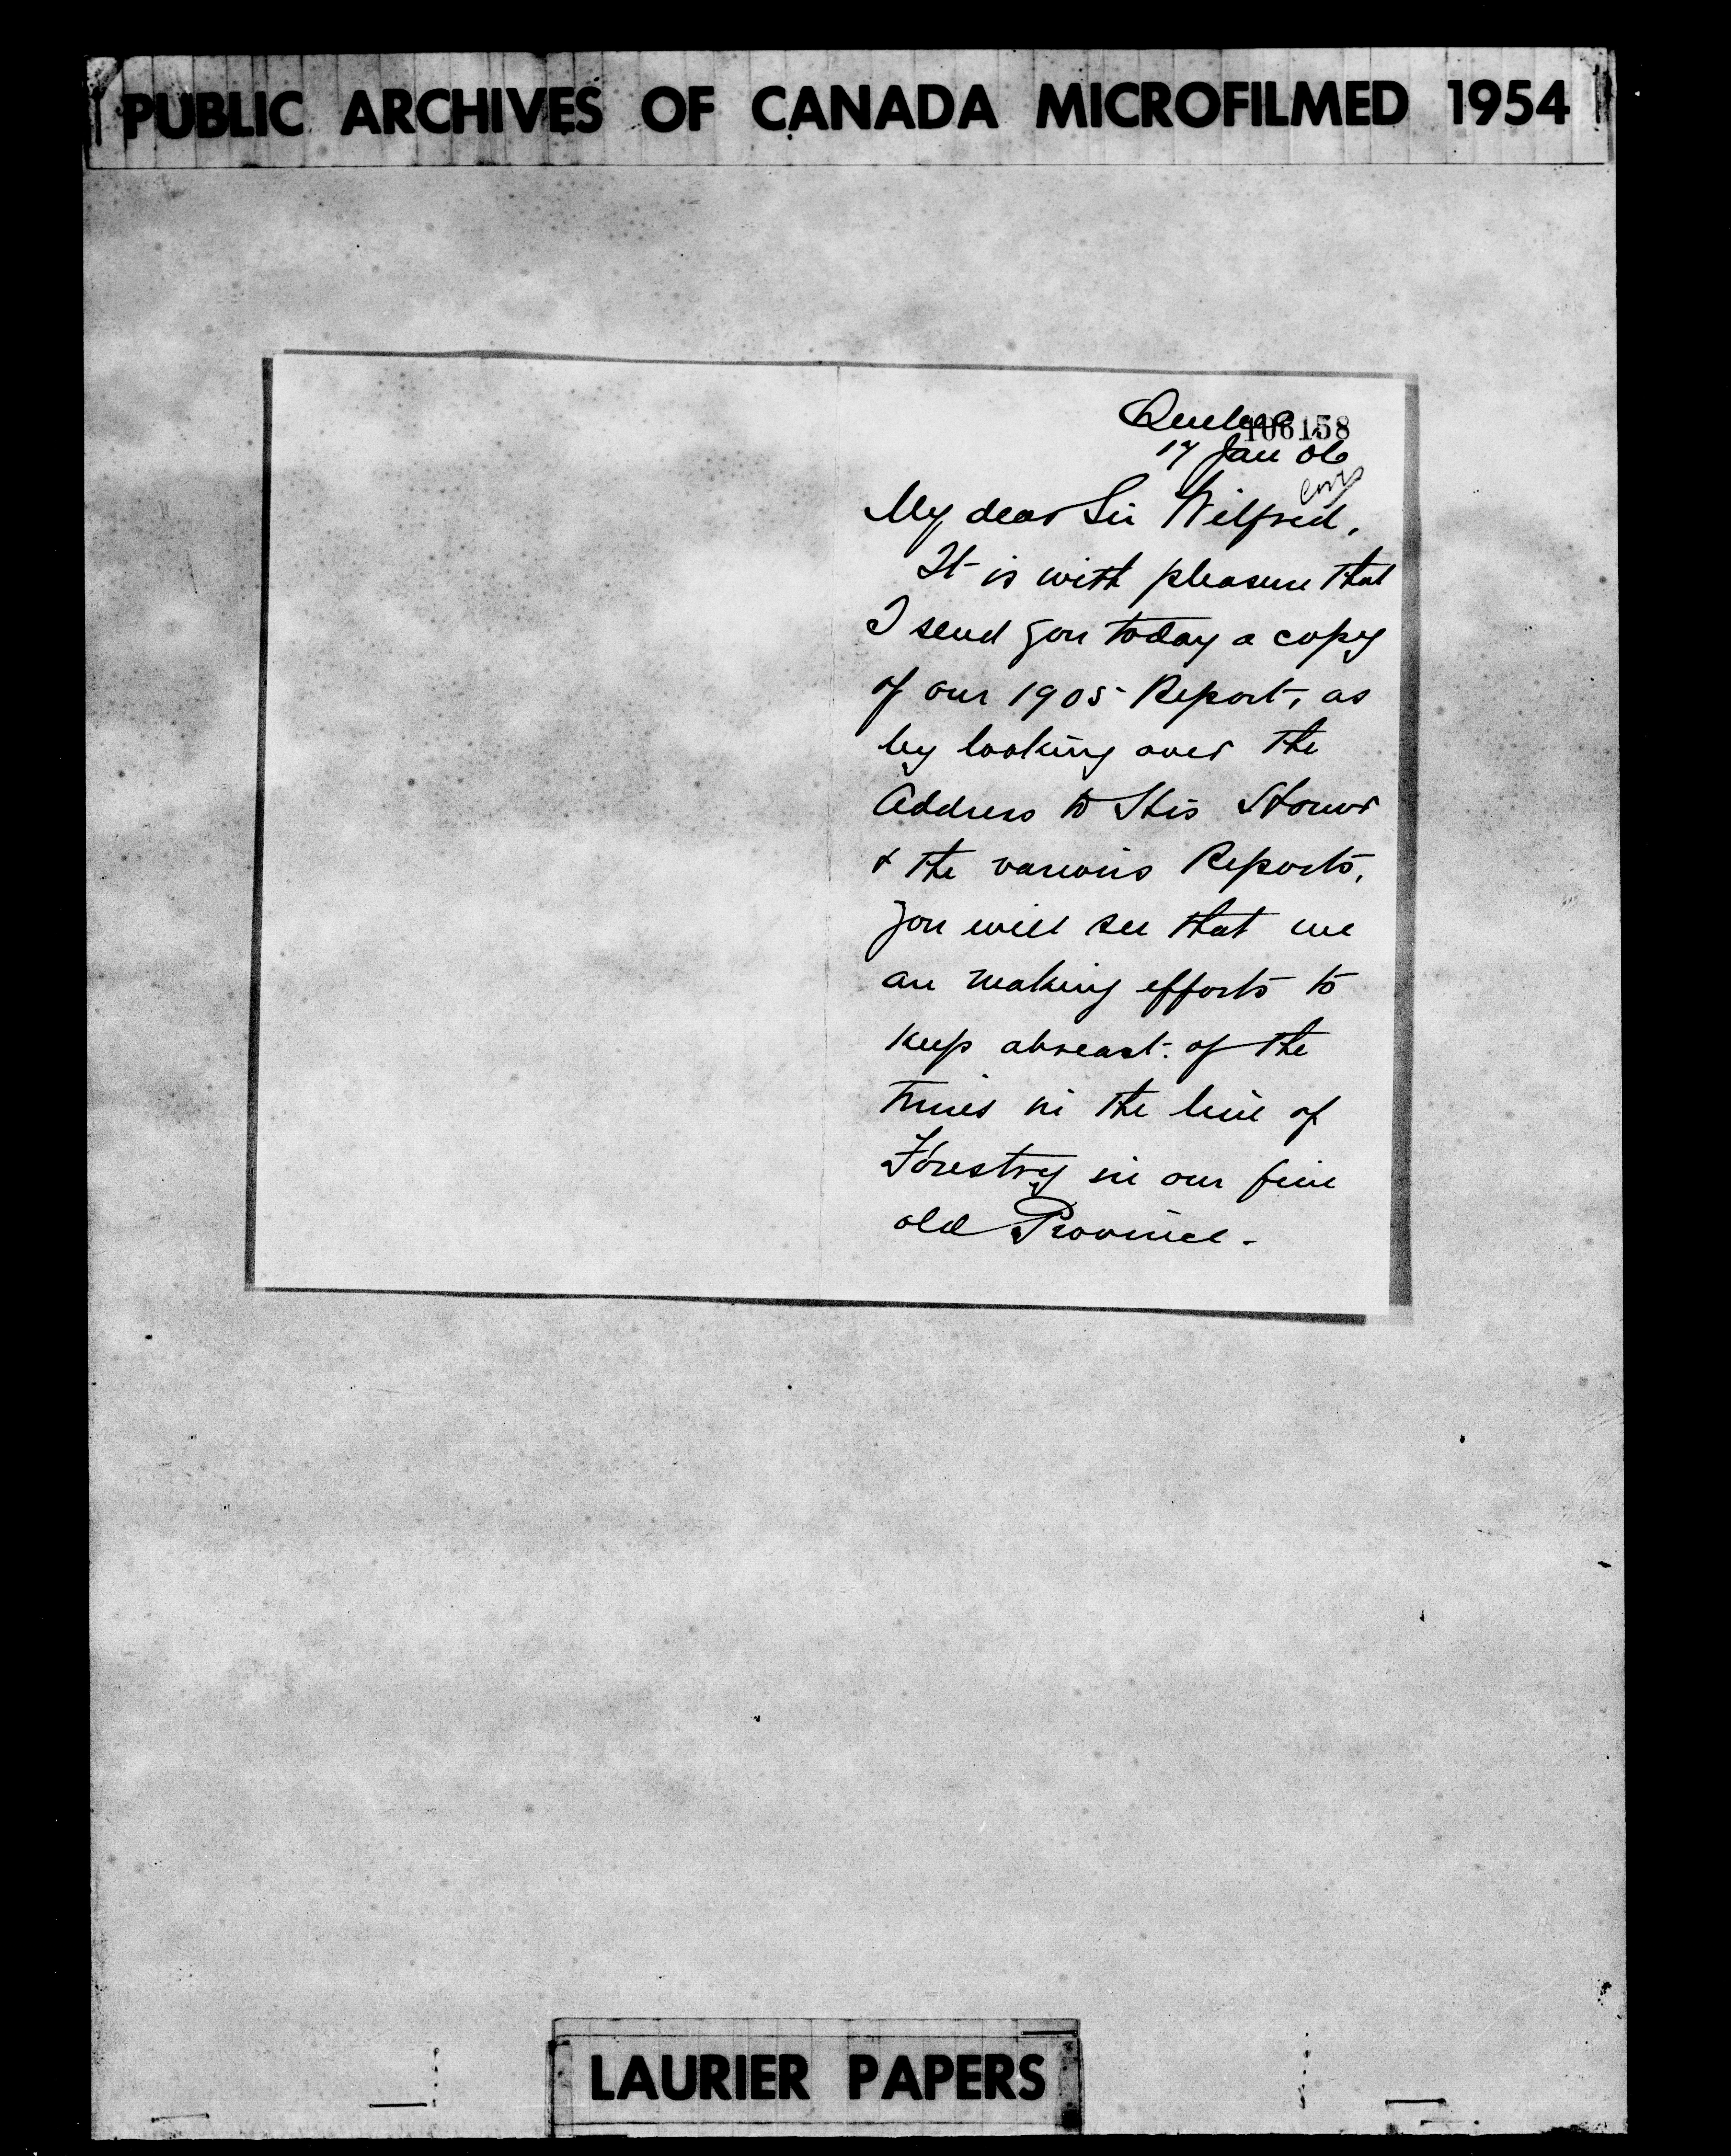 PUBLIC ARCHIVES OF CANADA MICROFILMED 1954
Quebec
106158
17 Jan 06
My dear Sir Wilfred,
It is with pleasure that
I send you today a copy
of our 1905 Report, as
by looking over the
Address to His Honour
& the various Reports,
you will see that we
are making efforts to
keep abreast of the
times in the line of
Forestry in our fine
old Province.
LAURIER PAPERS